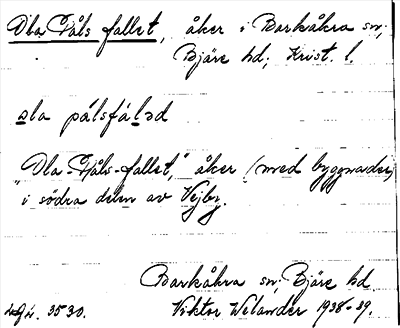 Ola Påls fallet, åker i Barkåkra sn;
Bjäre hd; Krist. l.
ola pålsfáləd
"Ola-Påls-fallet," åker (med byggnader)
i södra delen av Vejby.
Barkåkra sn; Bjäre hd.
Viktor Welander 1938-39.
3530.